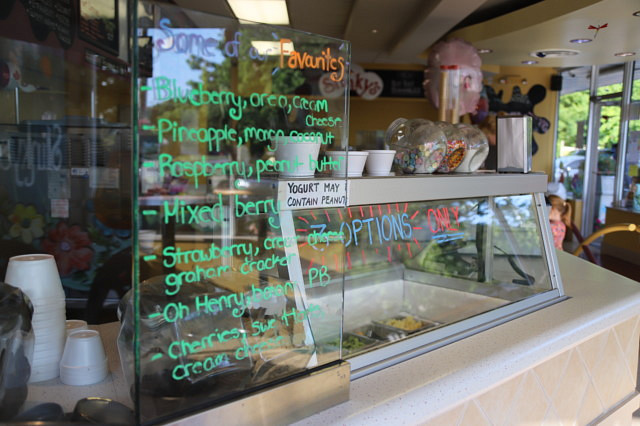 Some of our Favourites
-Blueberry, oreo, cream
cheese
-Pineapple, mango, coconut
-Raspberry, peanut butter
-Mixed berry
-Strawberry, cream cheese
graham cracker
-Oh Henry, banana, PB
-Cherries,
cream cheese
YOGURT MAY
CONTAIN PEANUT
3 OPTIONS ONLY